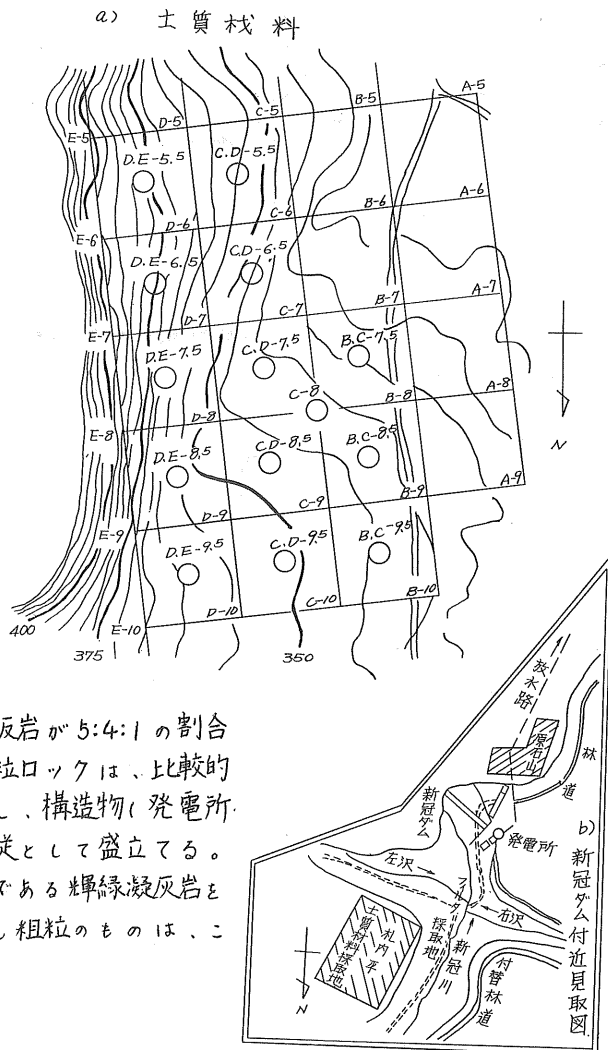 a) 土質材料
A-5
B-5
C-5
D-5
E-5
D.E-5.5
C.D-5.5
A-6
B-6
C-6
D-6
E-6
D.E-6.5
C.D-6.5
A-7
B-7
C-7
D-7
E-7
D.E-7.5
C.D-7.5
B.C-7.5
C-8
A-8
B-8
D-8
E-8
D.E-8.5
C.D-8.5
B.C-8.5
A-9
B-9
C-9
D-9
E-9
D.E-9.5
C.D-9.5
B.C-9.5
B-10
C-10
D-10
E-10
400
375
350
N
反岩が5:4:1の割合
粒ロックは、比較的
し、構造物(発電所.
従として盛立てる。
である輝緑凝灰岩を
し粗粒のものは、こ
放水路
原石山
林道
新冠ダム
発電所
左沢
右沢
フィルター採取地
新冠川
札内平
土質材料採取地
付替林道
N
b) 新冠ダム付近見取図